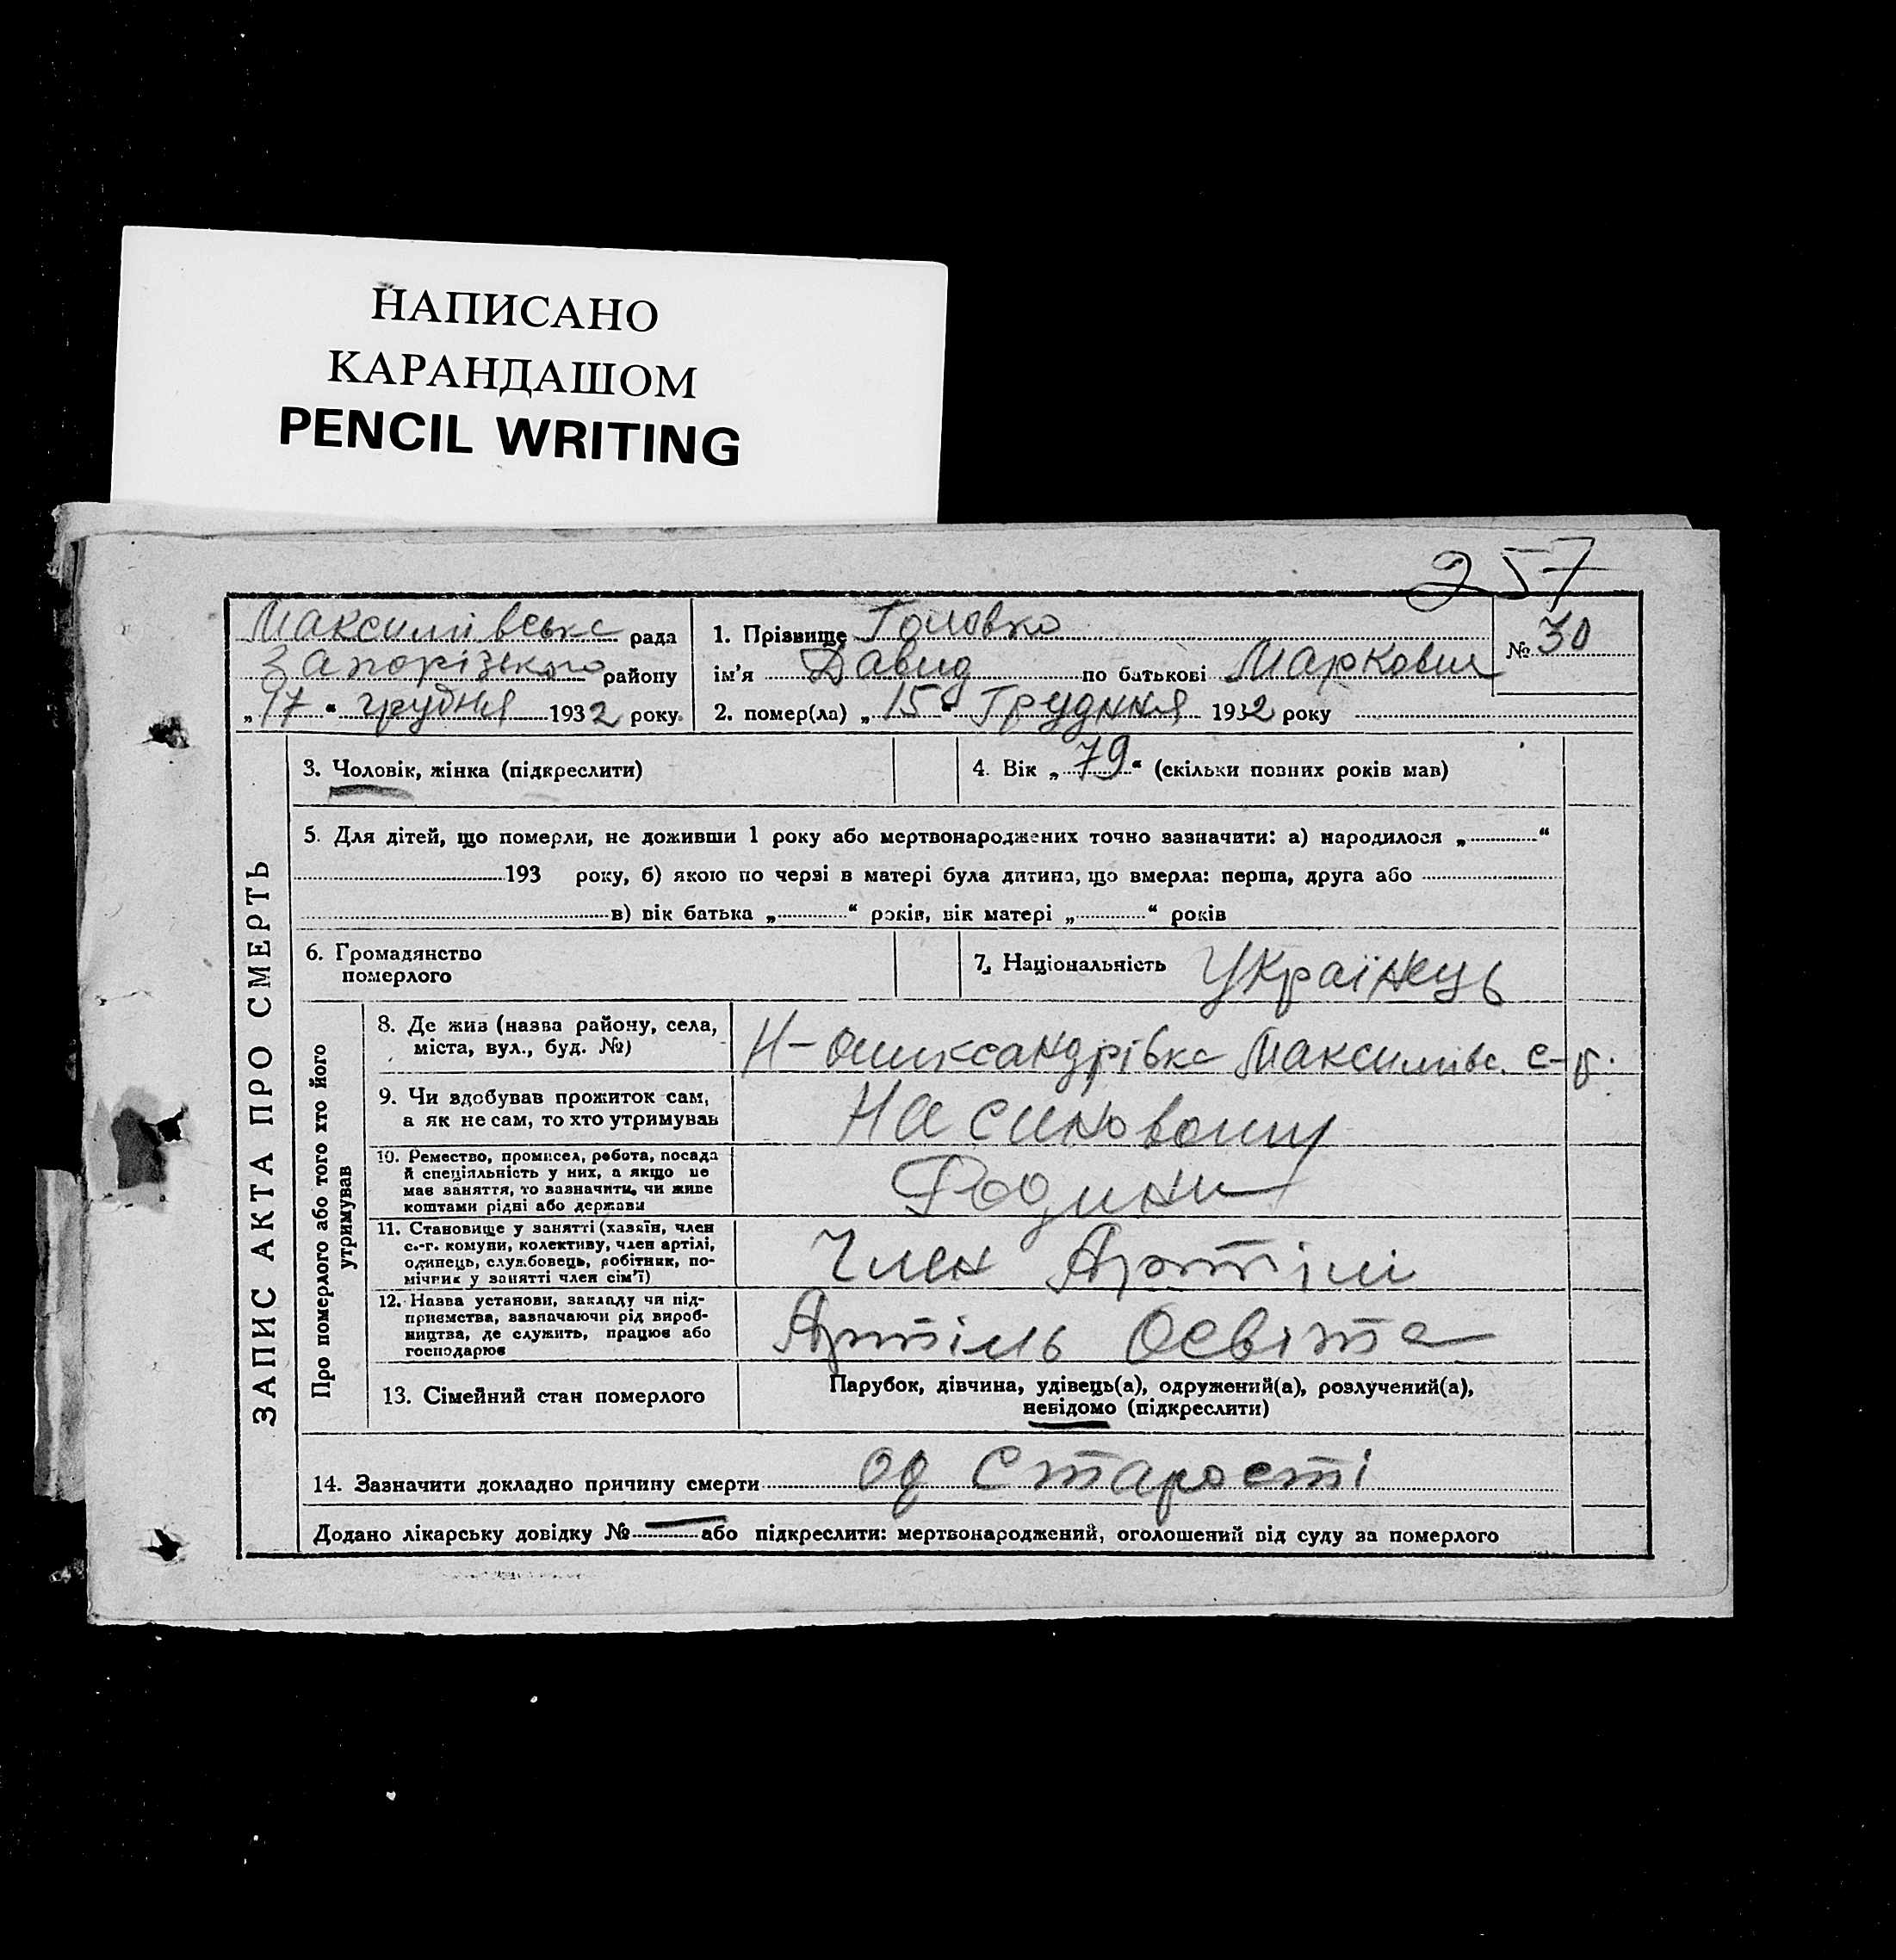 НАПИСАНО
КАРАНДАШОМ
PENCIL WRITING
257
Максимівська рада
Запорізького району
„17“ грудня 1932 року
1. Прізвище Головко
ім'я Давид по батькові Маркович
№ 30
2. помер(ла) „15“ Грудння 1932 року
ЗАПИС АКТА ПРО СМЕРТЬ
3. Чоловік, жінка (підкреслити)
4. Вік „79“ (скільки повних років мав)
5. Для дітей, що померли, не доживши 1 року або мертвонароджених точно зазначити: а) народилося „ “
193 року, б) якою по черзі в матері була дитина, що вмерла: перша, друга або
в) вік батька „ “ років, вік матері „ “ років
6. Громадянство
померлого
7. Національність Українець
Про померлого або того хто його
утримував
8. Де жив (назва району, села,
міста, вул., буд. №)
Н-олександрівка Максимівс. с-р.
9. Чи вдобував прожиток сам,
а як не сам, то хто утримував
На синовому
10. Ремество, промисел, робота, посада
й спеціяльність у них, а якщо не
має заняття, то зазначити, чи живе
коштами рідні або держави
Родини
11. Становище у занятті (хазяїн, член
с.-г. комуни, колективу, член артілі,
одинець, службовець, робітник, по-
мічник у занятті член сім'ї)
Член Артілі
12. Назва установи, закладу чи під-
приємства, вазначаючи рід вироб-
ництва, де служить, працює або
господарює
Артіль Освіта
13. Сімейний стан померлого
Парубок, дівчина, удівець(а), одружений(а), розлучений(а),
невідомо (підкреслити)
14. Зазначити докладно причину смерти од Старості
Додано лікарську довідку № — або підкреслити: мертвонароджений, оголошений від суду за померлого